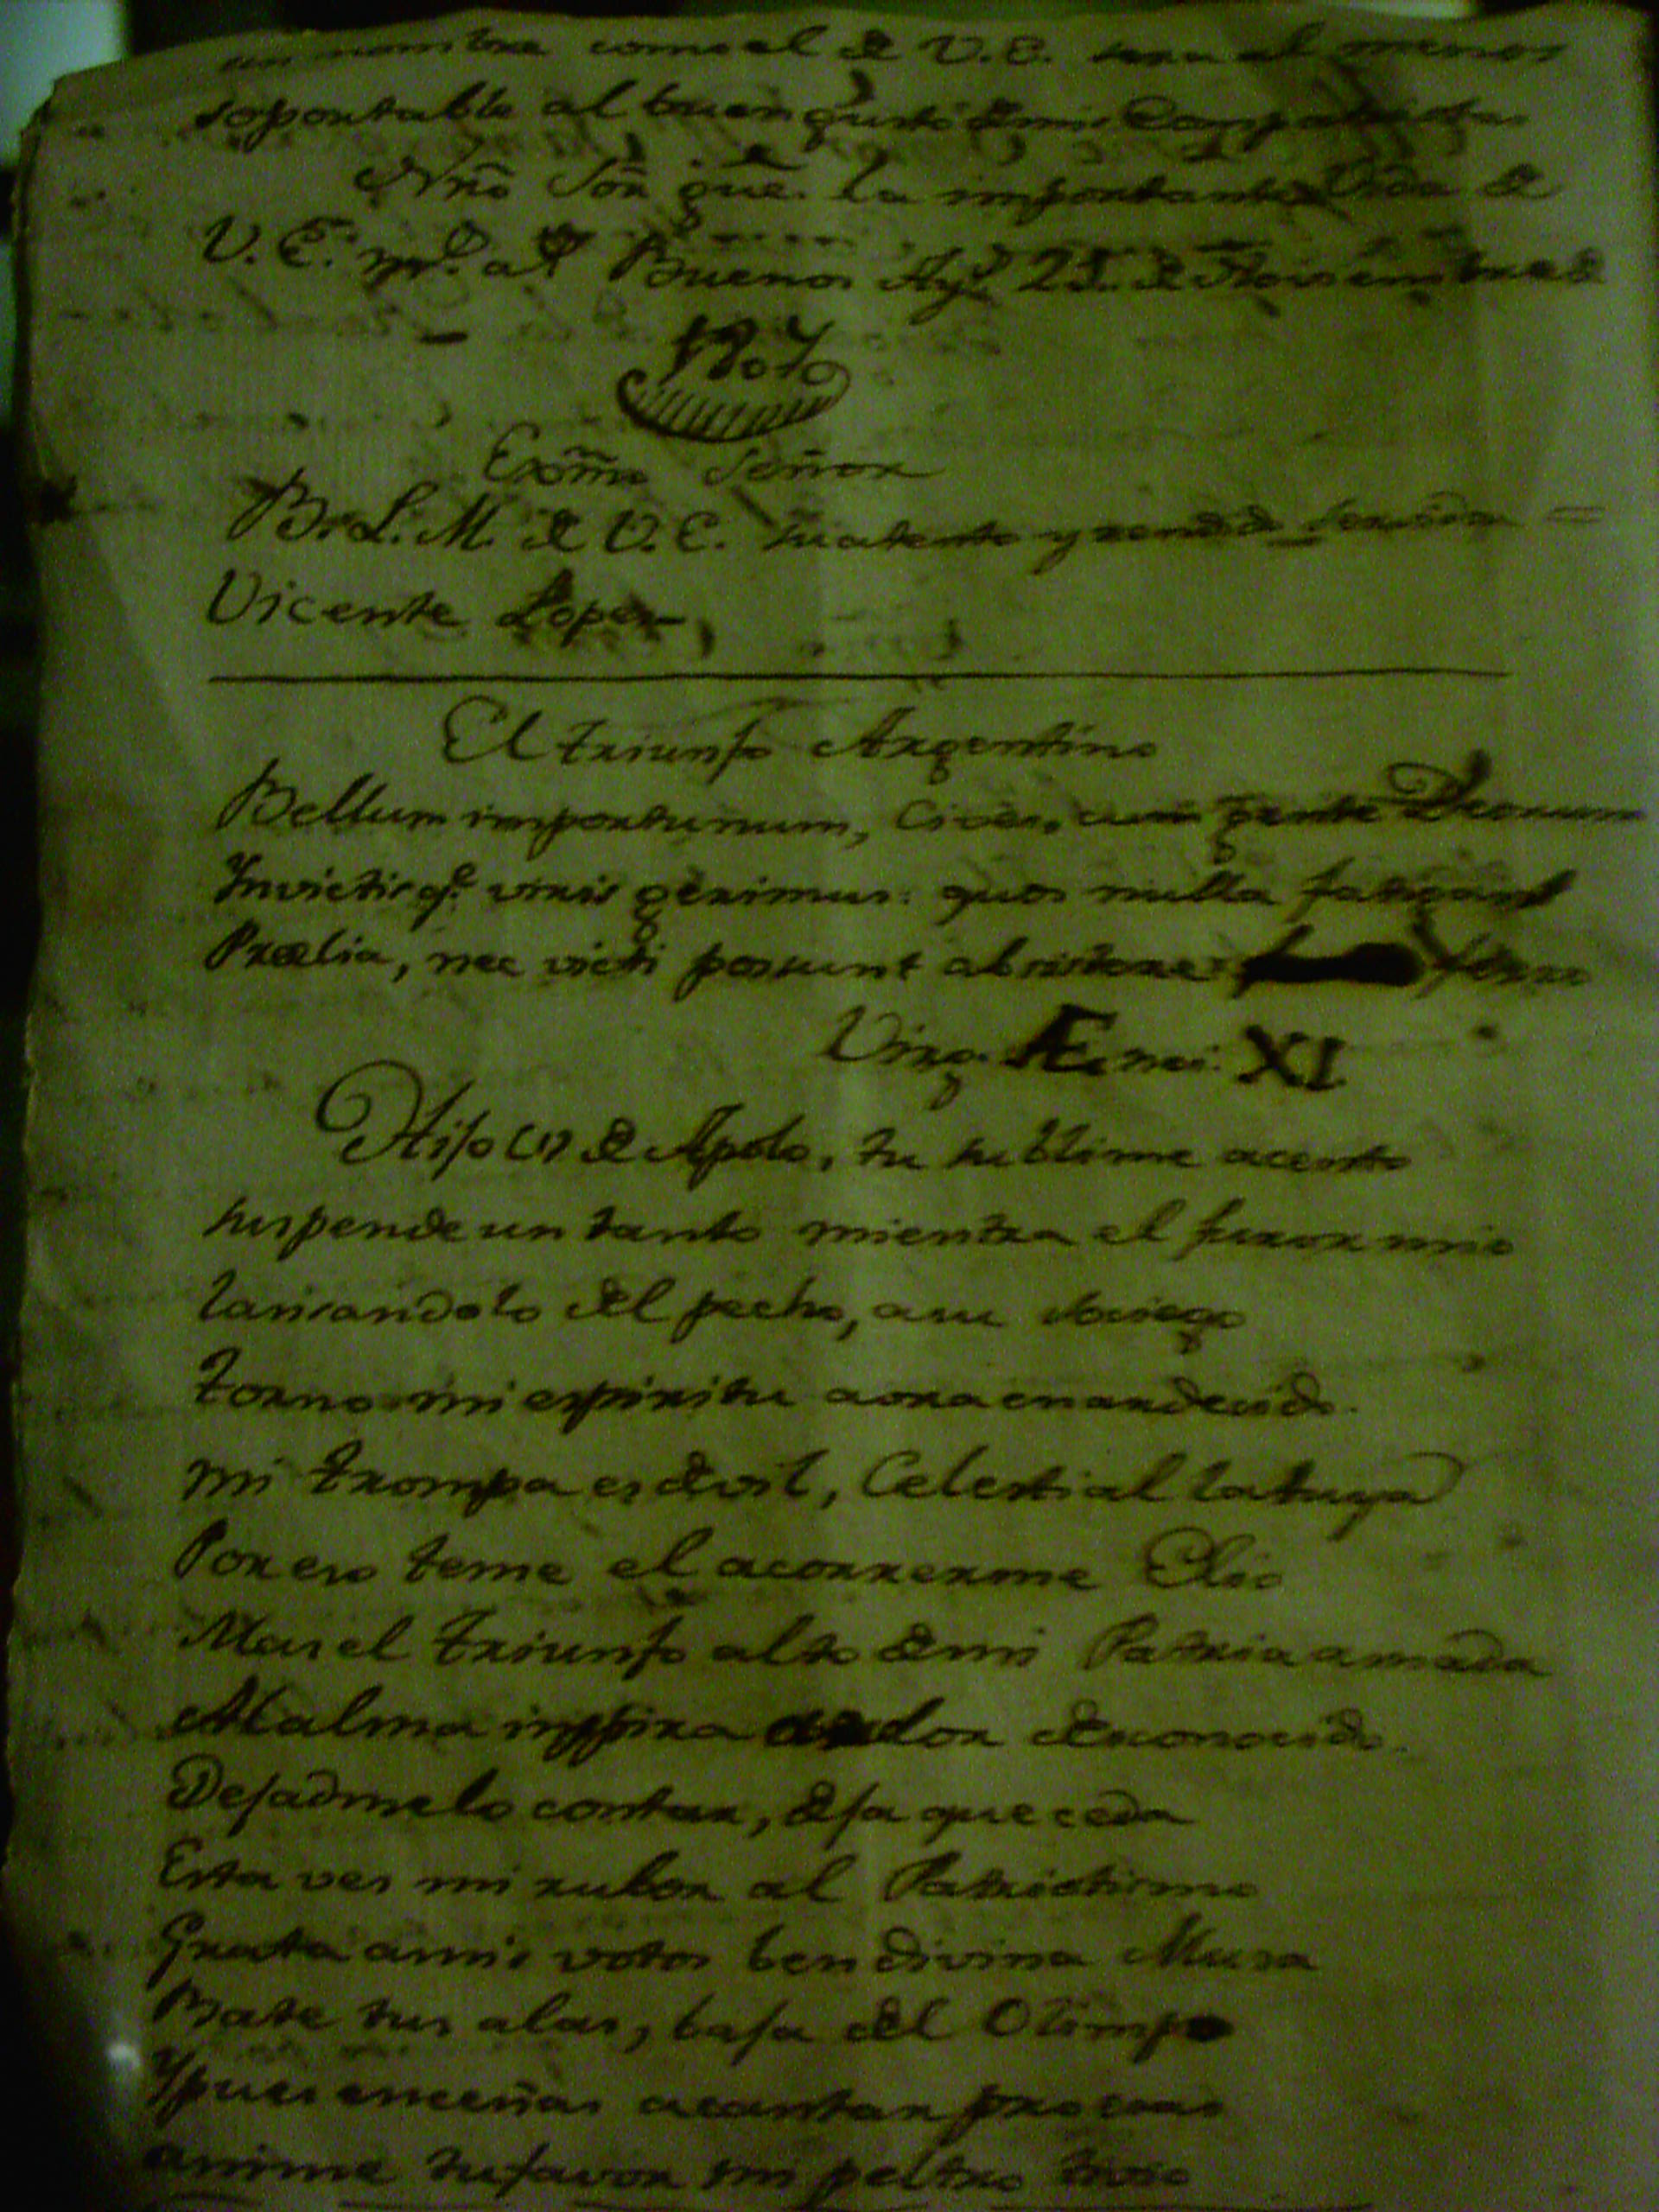 un nombre como el de V.E. sera al menos
soportable al buen gusto de mis Compatriotas
Nrõ Sõr güe. la importante Vida de
V.E. ms. as. Buenos Ays. 25. de Noviembre de
1807
Exõmo Señor
B. L. M. de V.E. su atento y rendido servidor =
Vicente Lopez
El triunfo Argentino
Bellum importunum, Cives, cum gente Deorum
Invictis qe. viris gerimus: quos nulla fatigant
Prælia, nec victi possunt absistere ferro
Virg. Ænei. XI
Hijo (1) de Apolo, tu sublime acento
suspende un tanto mientra el furor mio
lansandolo del pecho, a su sosiego
torno mi espiritu aora enardecido.
mi trompa es devil, Celestial la tuya
Por eso teme el acorrerme Clio
Mas el triunfo alto de mi Patria amada
Al alma inspira ardor desconocido.
Dejadmelo contar, deja que ceda
Esta ves mi rubor al Patriotismo
Grata a mis votos ben divina Musa
Bate tus alas, baja del Olimpo
Y pues enceñas a cantar proezas
anime tu favor mi pletro tivio